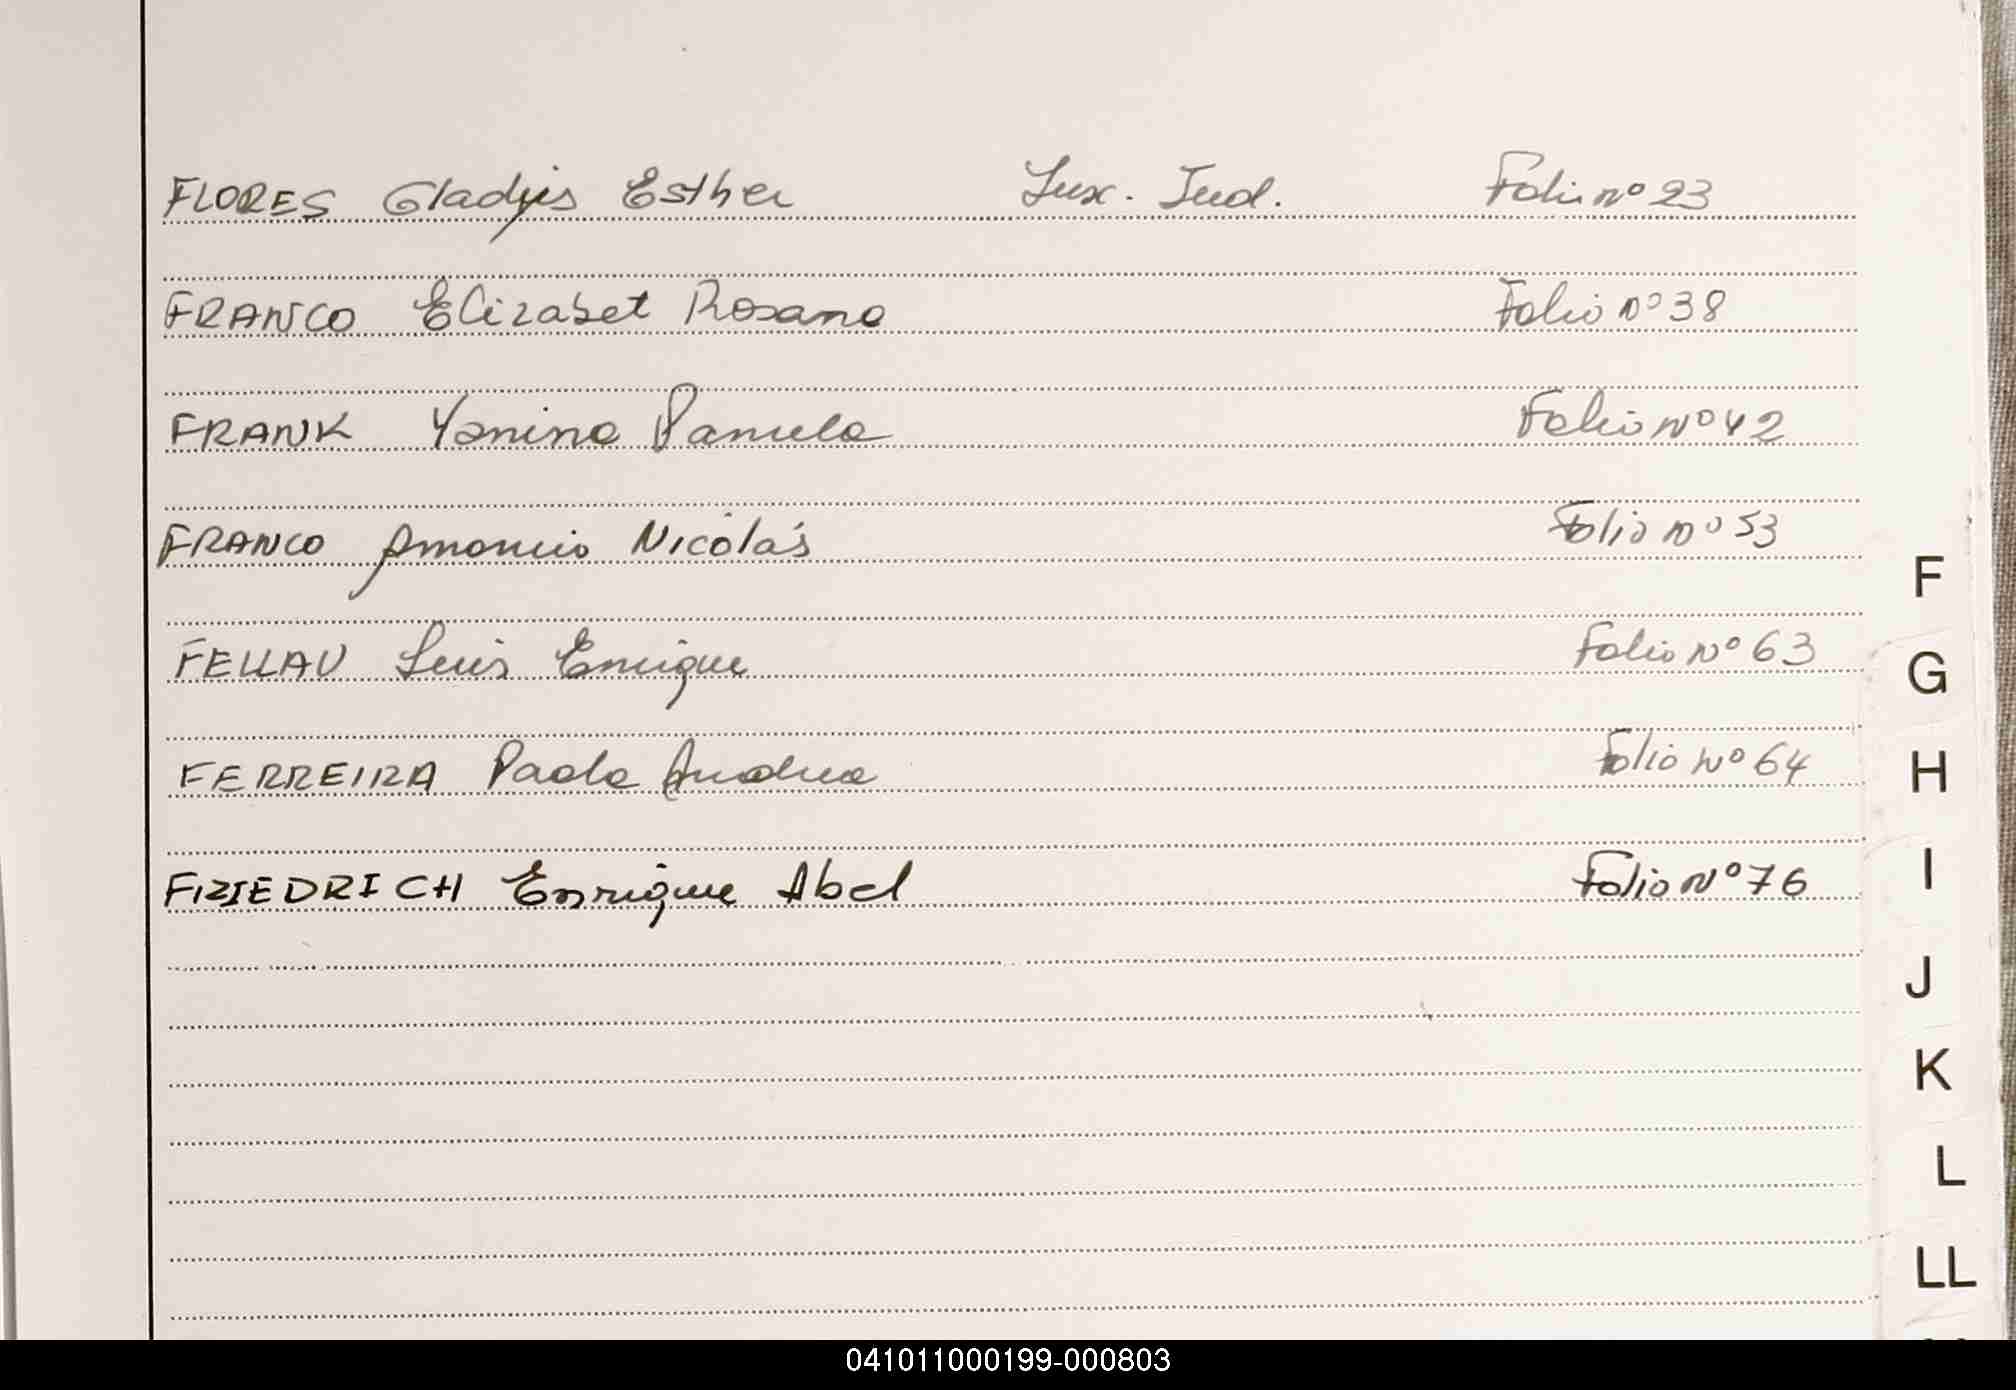 FLORES Gladys Esther Jux. Jud. Folio nº 23
FRANCO Elizabet Rosana Folio nº 38
FRANK Yanina Pamela Folio nº 42
FRANCO Amancio Nicolás Folio nº 53
FELLAU Luis Enrique Folio Nº 63
FERREIRA Paola Andrea Folio Nº 64
FRIEDRICH Enrique Abel Folio Nº 76
F
G
H
I
J
K
L
LL
041011000199-000803